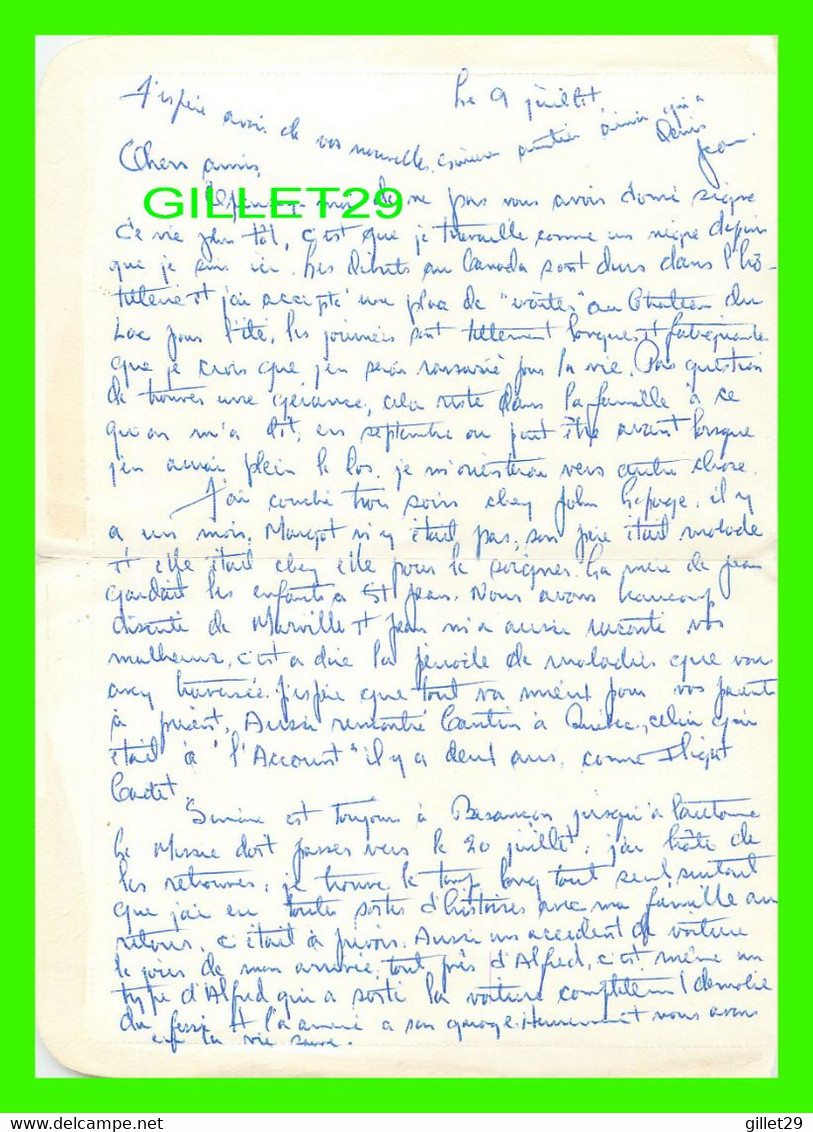 Le 9 juillet
J'espère avoir de vos nouvelles. amitiés ainsi qu'a
Denis
Jean
Chers amis,
GILLET29
moi de ne pas vous avoir donné signe
de vie plus tôt, c'est que je travaille comme un nègre depuis
que je suis ici. Les débuts au Canada sont durs dans l'hô-
tellerie et j'ai accepté une place de "waiter" au Chateau du
Lac pour l'été, les journées sont tellement longues et fatiguantes
que je crois que j'en serai rassasié pour la vie. Pas question
de trouver une gérance, cela reste dans la famille à ce
qu'on m'a dit, en septembre ou peut être avant lorsque
j'en aurai plein le dos, je m'orienterai vers autre chose.
J'ai couché trois soirs chez John Lepage, il y
a un mois. Margot n'y était pas, son père était malade
et elle était chez elle pour le soigner. La mère de Jean
gardait les enfants a St Jean. Nous avons beaucoup
discuté de Marville et Jean m'a aussi raconté vos
malheurs, c'est a dire la période de maladies que vous
avez traversée. J'espère que tout va mieux pour vos parents
à présent. Aussi rencontré Cantin à Québec, celui qui
était à "l'Account" il y a deux ans, comme Flight
Cadet.
Simone est toujours à Besançon jusqu'à l'automne
doit passer vers le 20 juillet, j'ai hâte de
les retrouver, je trouve le temps long tout seul, surtout
que j'ai eu toutes sortes d'histoires avec ma famille au
retour, c'était à prévoir. Aussi un accident de voiture
le jour de mon arrivée, tout près d'Alfred, c'est même un
type d'Alfred qui a sorti la voiture complètement démolie
du fossé et l'a amené a son garage. Heureusement nous avons
eu la vie sauve.
gillet29